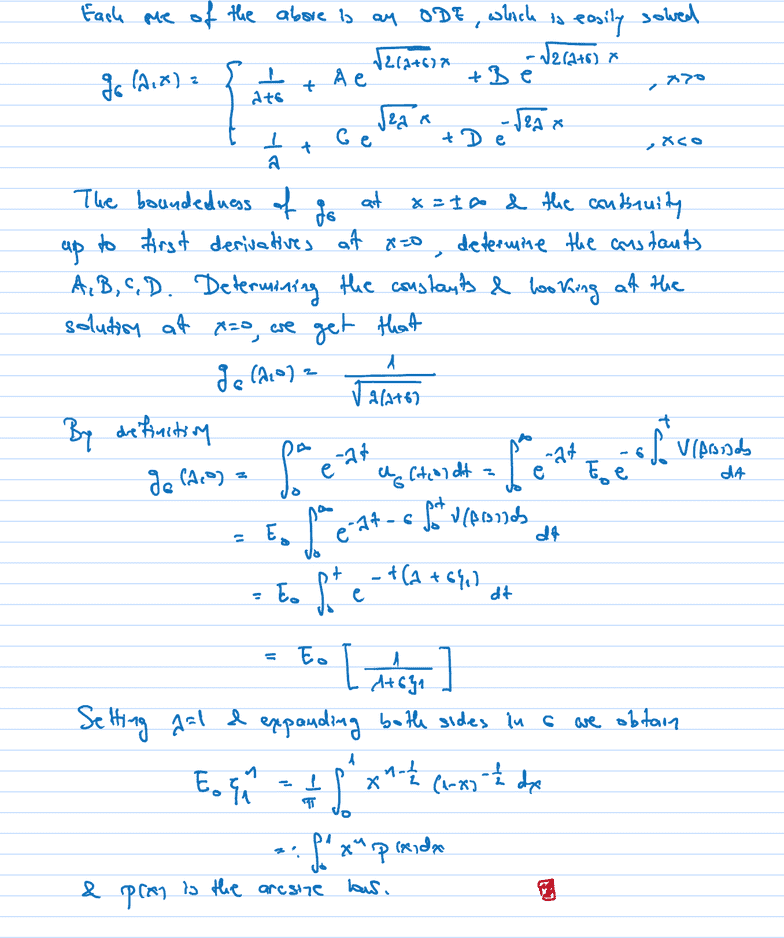 Each one of the above is an ODE, which is easily solved
g_σ(λ,x) = { 1/(λ+σ) + A e^{√(2(λ+σ)) x} + B e^{-√(2(λ+σ)) x} , x>0
1/λ + C e^{√(2λ) x} + D e^{-√(2λ) x} , x<0
The boundedness of g_σ at x = ±∞ & the continuity
up to first derivatives at x=0, determine the constants
A, B, C, D. Determining the constants & looking at the
solution at x=0, we get that
g_σ(λ,0) = 1/√(λ(λ+σ))
By definition
g_σ(λ,0) = ∫_0^∞ e^{-λt} u_σ(t,0) dt = ∫_0^∞ e^{-λt} E_0 e^{-σ∫_0^t V(β(s))ds} dt
= E_0 ∫_0^∞ e^{-λt - σ∫_0^t V(β(s))ds} dt
= E_0 ∫_0^t e^{-t(λ + σξ_1)} dt
= E_0 [ 1/(λ+σξ_1) ]
Setting λ=1 & expanding both sides in σ we obtain
E_0 ξ_1^n = 1/π ∫_0^1 x^{n-1/2} (1-x)^{-1/2} dx
=: ∫_0^1 x^n p(x)dx
& p(x) is the arcsine law.